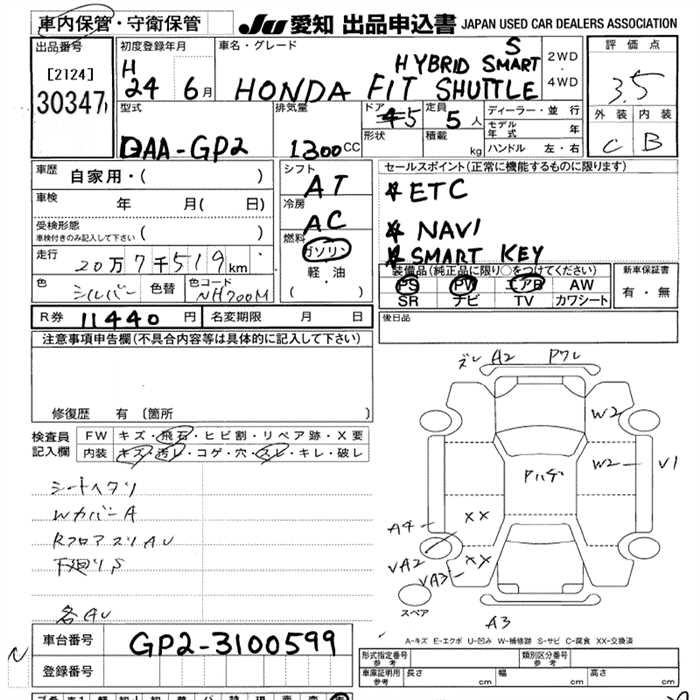 車内保管・守衛保管 JU 愛知 出品申込書 JAPAN USED CAR DEALERS ASSOCIATION
出品番号
[2124]
30347
初度登録年月
H
24 6月
車名・グレード
HYBRID S SMART
HONDA FIT SHUTTLE
2WD
・
4WD
評価点
3.5
外装 内装
C B
型式
DAA-GP2
排気量
1300CC
ドア
5
形状
定員
5人
積載
kg
ディーラー・並行
モデル年式 年
ハンドル 左・右
車歴
自家用・( )
車検
年 月( 日)
受検形態
車検付きのみ記入して下さい ( )
走行
20万7千519km
色
シルバー 色替
色コード
NH700M
シフト
AT
冷房
AC
燃料
ガソリン
・
軽・油
( )
セールスポイント(正常に機能するものに限ります)
ETC
NAVI
SMART KEY
装備品(純正品に限り○をつけてください)
PS PW エアB AW
SR ナビ TV カワシート
新車保証書
有・無
R券 11440円 名変期限 月 日
後日品
注意事項申告欄(不具合内容等は具体的に記入して下さい)
修復歴 有〔箇所 〕
検査員
記入欄
FW キズ・飛石・ヒビ割・リペア跡・X要
内装 キズ・汚レ・コゲ・穴・スレ・キレ・破レ
シートヘタリ
WカバーA
RフロアスリAU
下廻りS
各AU
ズレ A2 Pワレ
W2
W2 V1
Pハゲ
A4
XX
VA2
VA3
XX
スペア
A3
A-キズ E-エクボ U-凹み W-補修跡 S-サビ C-腐食 XX-交換済
車台番号
GP2-3100599
登録番号
形式指定番号
参考
類別区分番号
参考
車庫証明用
参考
長さ cm 幅 cm 高さ cm